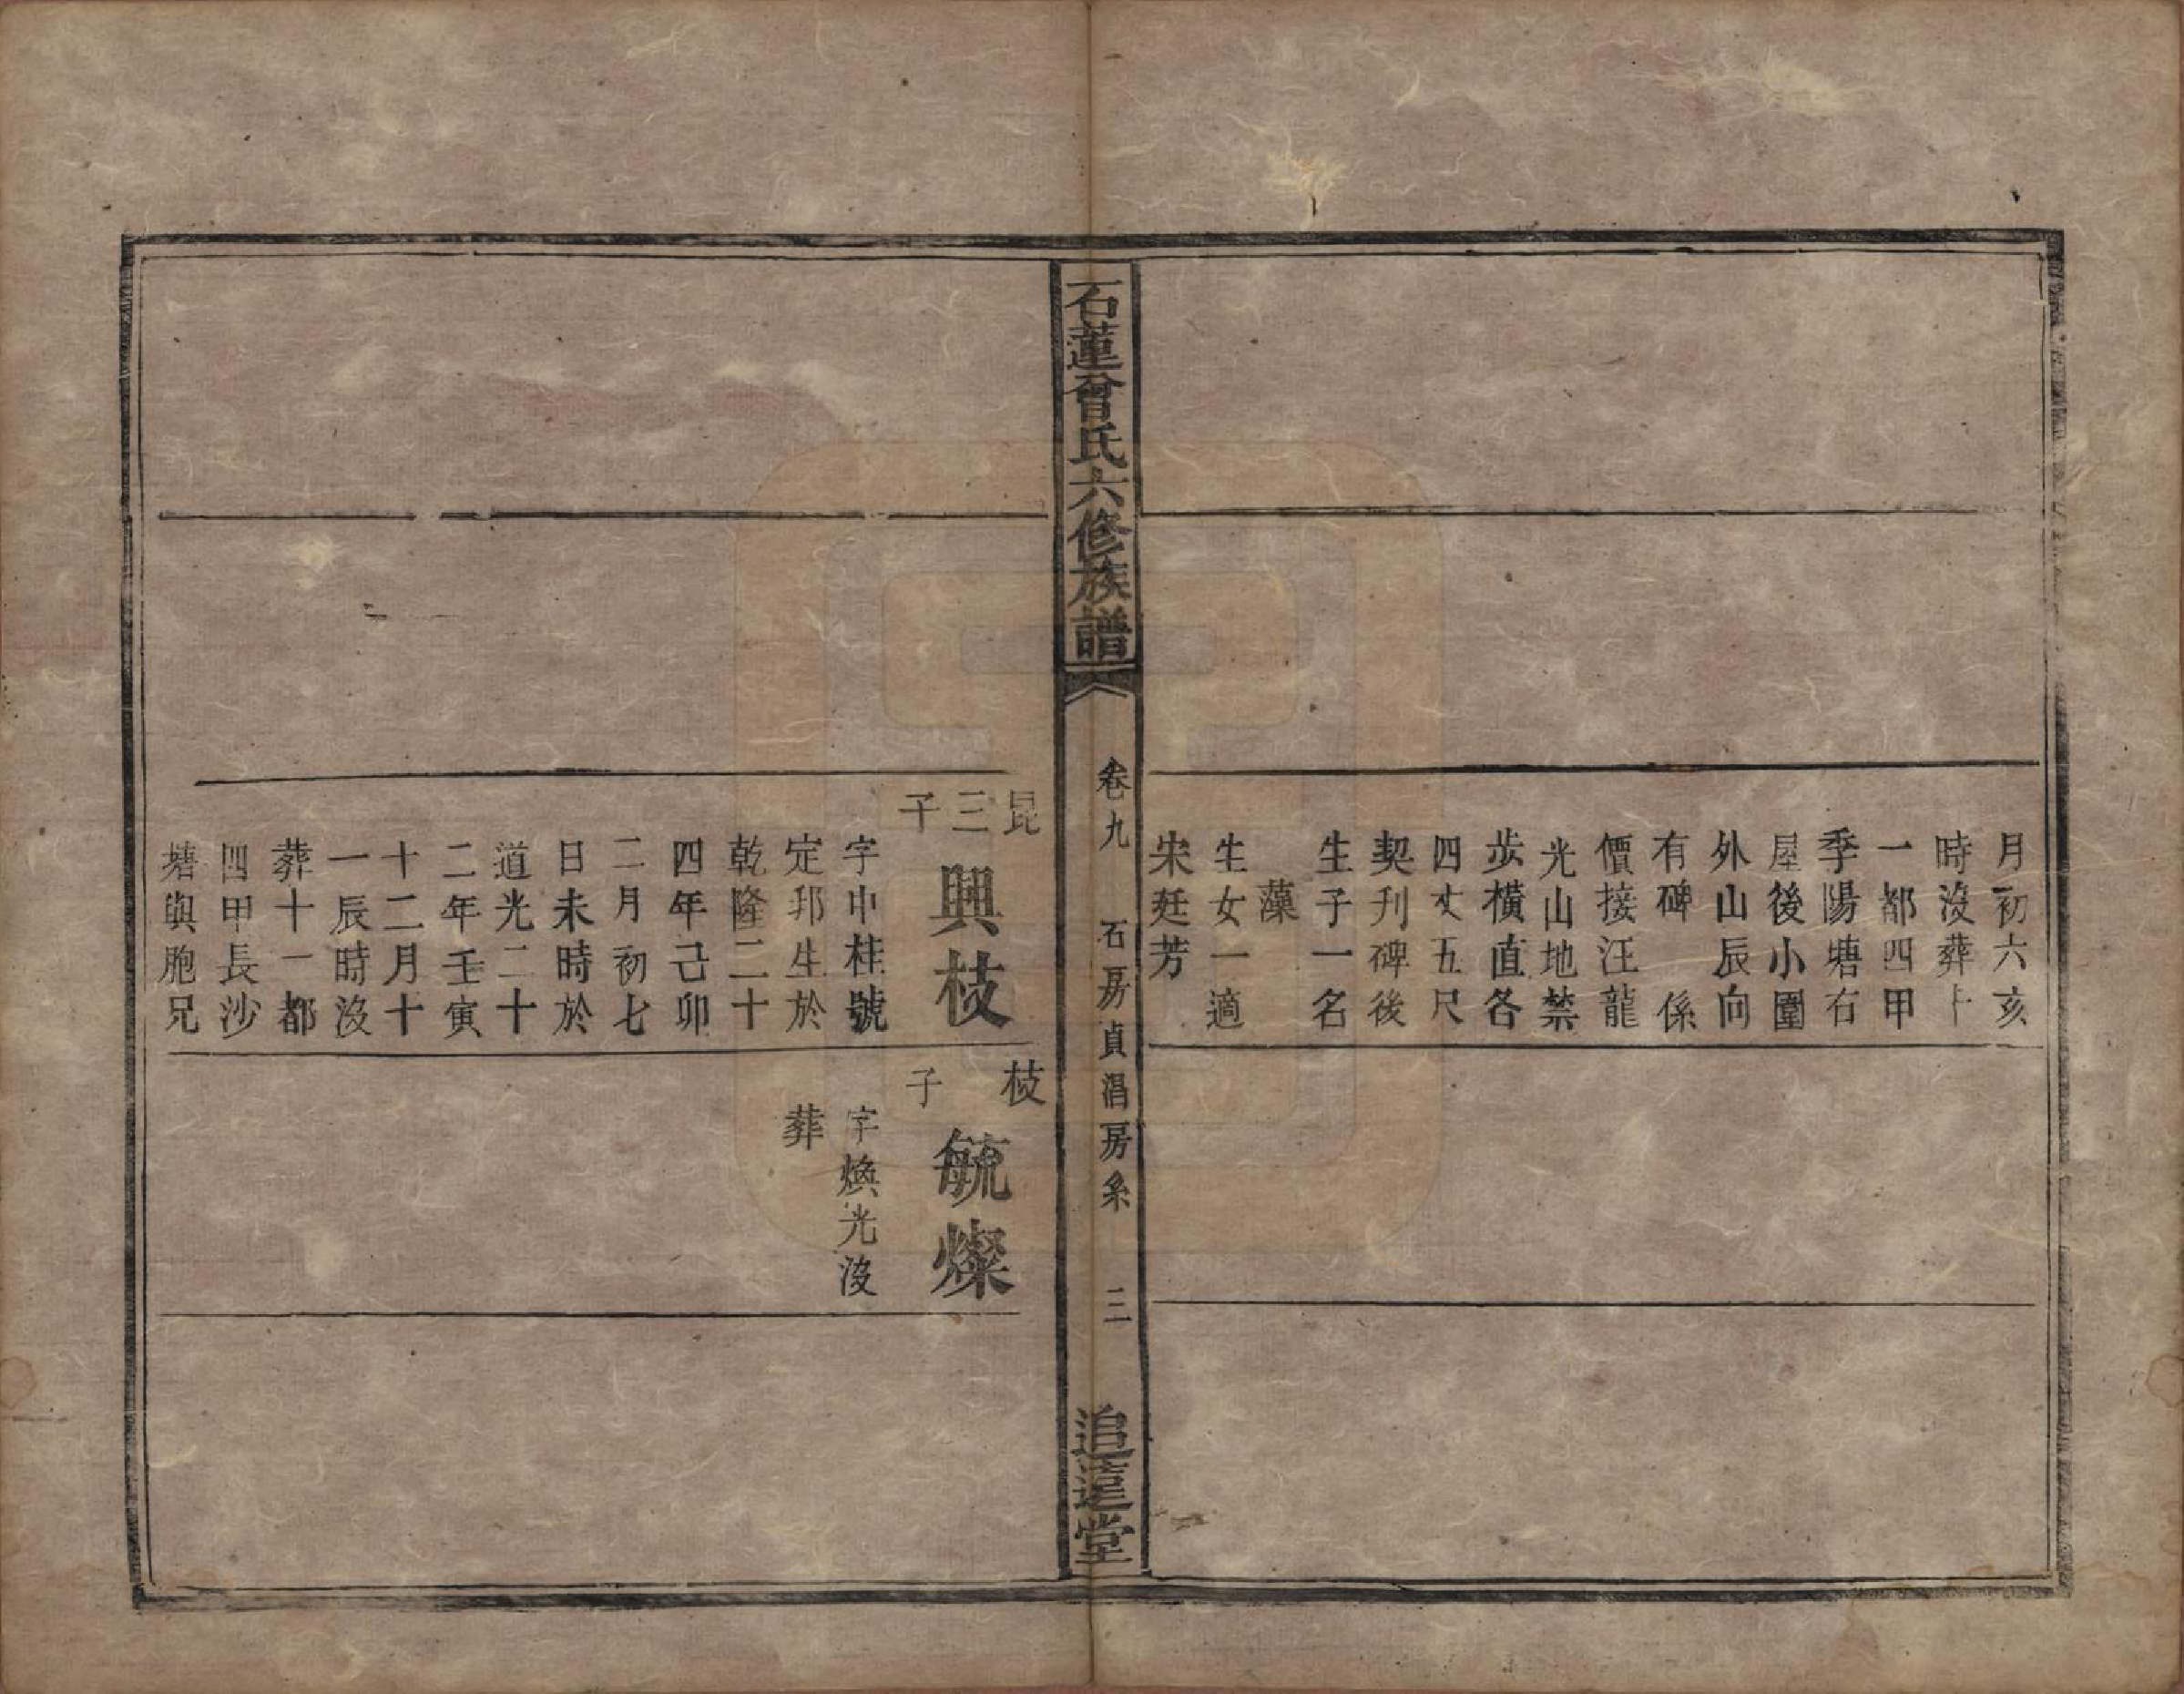 月初六亥
時沒葬十
一都四甲
季陽塘右
屋後小圍
外山辰向
有碑 係
價接汪龍
光山地禁
步橫直各
四丈五尺
契刋碑後
生子一名
藻
生女一適
宋廷芳
石蓮曾氏六修族譜
卷九 石房貞淐房系 三
追遠堂
昆三子
興枝
字中桂號
定邦生於
乾隆二十
四年己卯
二月初七
日未時於
道光二十
二年壬寅
十二月十
一辰時沒
葬十一都
四甲長沙
塘與胞兄
枝子
毓燦
字煥光沒
葬